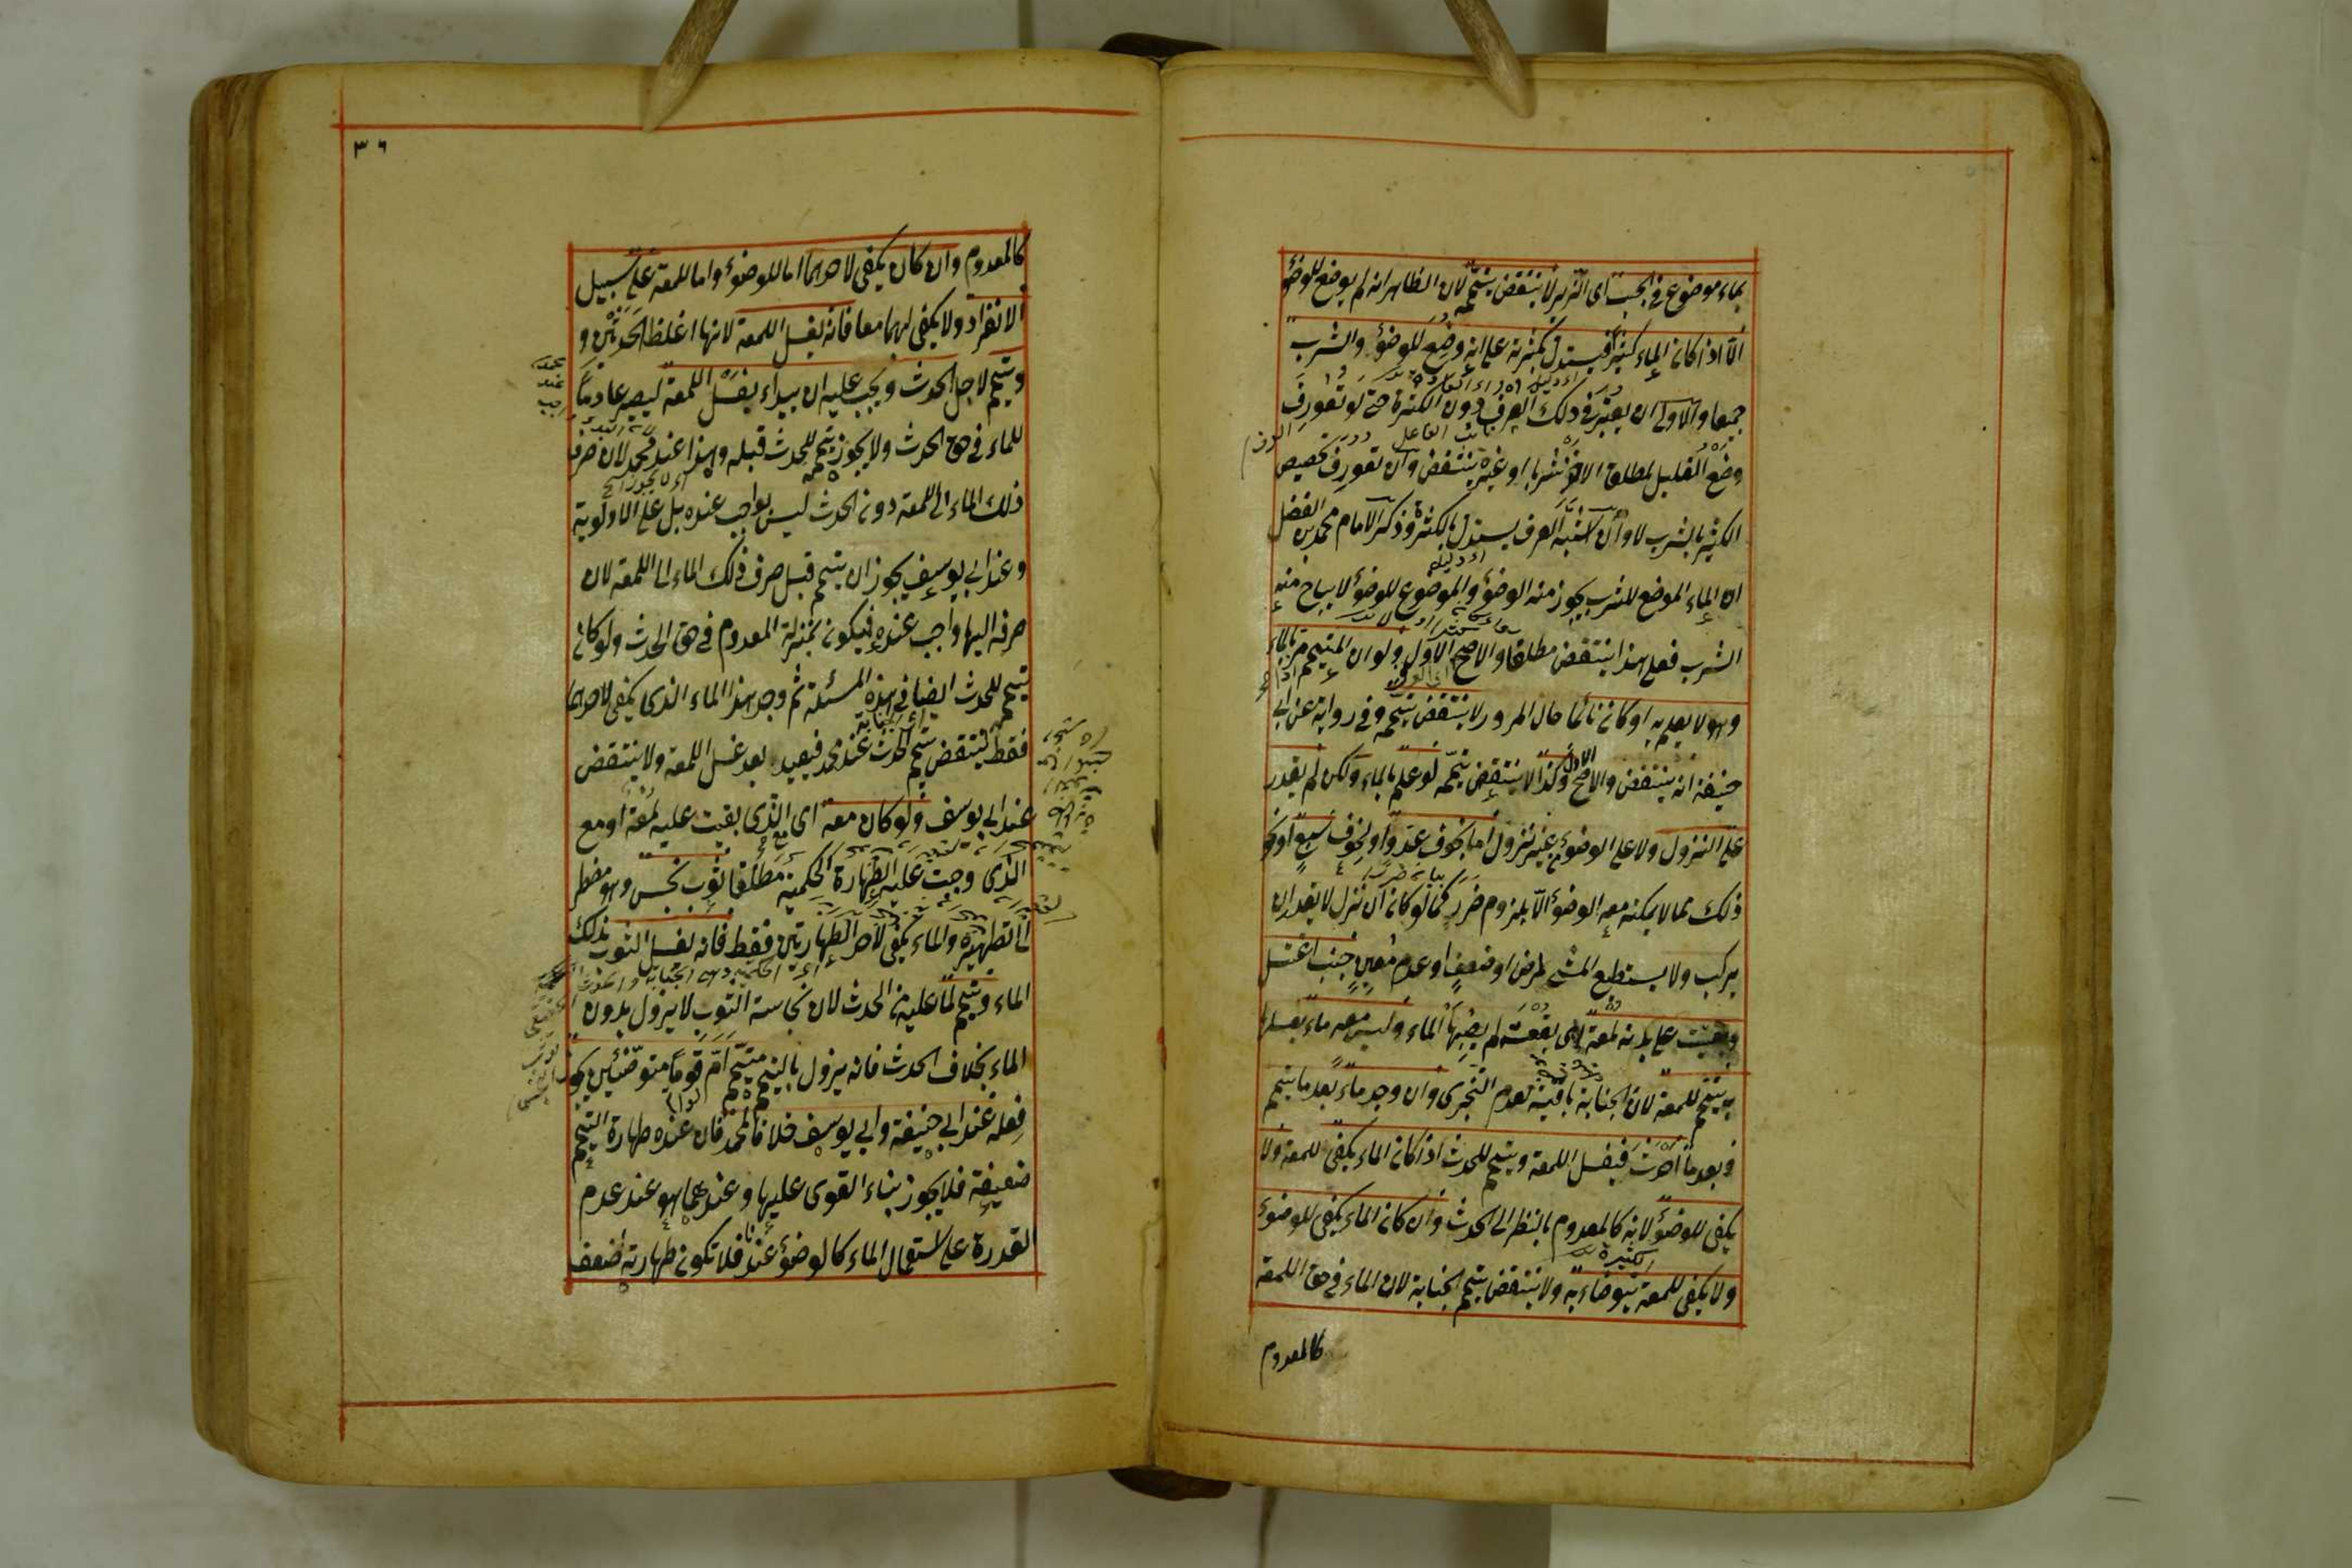 بماء موضوع في الحب اى الزير لا ينتقض تيممه لان الظاهر انه لم يوضع للوضؤ
الا اذا كان الماء كثيرا فيستدل بكثرته على انه وضع للوضوء والشرب
جميعا والاولى ان يعتبر في ذلك العرف دون الكثرة حتى لو تعورف
وضع القليل لمطلق الاخذ شربا او غيره ينتقض وان تعورف تخصيص
الكثير بالشرب لا وان اشتبه العرف يستدل بالكثرة وذكر الامام محمد بن الفضل
ان الماء الموضع للشرب يجوز منه الوضوء والموضوع للوضوء لا يباح منه
الشرب فعلى هذا ينتقض مطلقا والاصح الاول ولو ان المتيمم مر بالماء
وهو لا يعلم به او كان نائما حال المرور لا ينتقض تيممه وفي رواية عن ابى
حنيفة انه ينتقض والاصح الاول وكذا لا ينتقض تيممه لو علم بالماء ولكن لم يقدر
على النزول ولا على الوضوء بغير نزول اما بخوف عدو او لخوف سبع او نحو
ذلك مما لا يمكنه معه الوضوء الا بلزوم ضرر كما لو كان ان نزل لا يقدر ان
يركب ولا يستطيع المشى لمرض او ضعف او عدم معين جنب اغتسل
وبقيت على بدنه لمعة اى بقعة لم يصبها الماء وليس معه ماء يغسلها
به يتيمم للمعة لان الجنابة باقية لعدم التجزى وان وجد ماء بعد ما تيمم
وبعد ما احدث فيغسل اللمعة ويتيمم للحدث اذا كان الماء يكفى للمعة ولا
يكفى للوضوء لانه كالمعدوم بالنظر الى الحدث وان كان الماء يكفى للوضوء
ولا يكفى للمعة يتوضاء به ولا ينتقض تيمم الجنابة لان الماء في حق اللمعة
كالمعدوم
٣٦
كالمعدوم وان كان يكفى لاحدهما اما للوضوء واما للمعة على سبيل
الانفراد ولا يكفى لهما معا فانه يغسل اللمعة لانها اغلظ الحدثين و
ويتيمم لاجل الحدث ويجب عليه ان يبداء بغسل اللمعة ليصير عادما
للماء في حق الحدث ولا يجوز تيممه للحدث قبله وهذا عند محمد لان صرف
ذلك الماء الى اللمعة دون الحدث ليس بواجب عنده بل على الاولوية
وعند ابى يوسف يجوز ان يتيمم قبل صرف ذلك الماء الى اللمعة لان
صرفه اليها واجب عنده فيكون بمنزلة المعدوم في حق الحدث ولو كان
تيمم للحدث ايضا في هذه المسئلة ثم وجد هذا الماء الذى يكفى لاحدهما
فقط ينتقض تيمم الحدث عند محمد فيعيد بعد غسل اللمعة ولا ينتقض
عند ابى يوسف ولو كان معه اى الذى بقيت عليه لمعة او مع
الذى وجبت عليه الطهارة الحكمية مطلقا ثوب نجس وهو مضطر
الى تطهيره والماء يكفى لاحد الطهارتين فقط فانه يغسل الثوب بذلك
الماء ويتيمم لما عليه من الحدث لان نجاسة الثوب لا يزول بدون
الماء بخلاف الحدث فانه يزول بالتيمم متيمم ام قوما متوضئين يجوز
فعله عند ابى حنيفة وابى يوسف خلافا لمحمد فان عنده طهارة التيمم
ضعيفة فلا يجوز بناء القوى عليها وعندهما هو عند عدم
القدرة على استعمال الماء كالوضوء عندنا فلا تكون طهارته اضعف